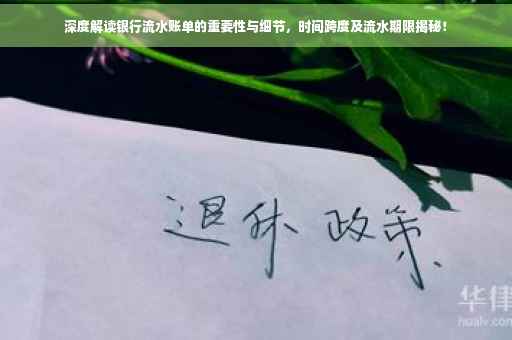 深度解读银行流水账单的重要性与细节，时间跨度及流水期限揭秘！
退休 政策
华律
hualv.com